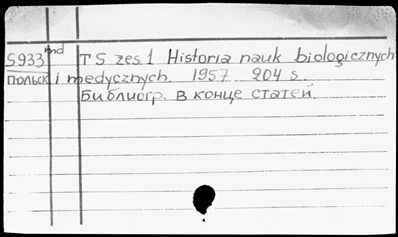 S933 mnd TS zes.1 Historia nauk biologicznych
польск i medycznych. 1957. 204 s.
Библиогр. в конце статей.